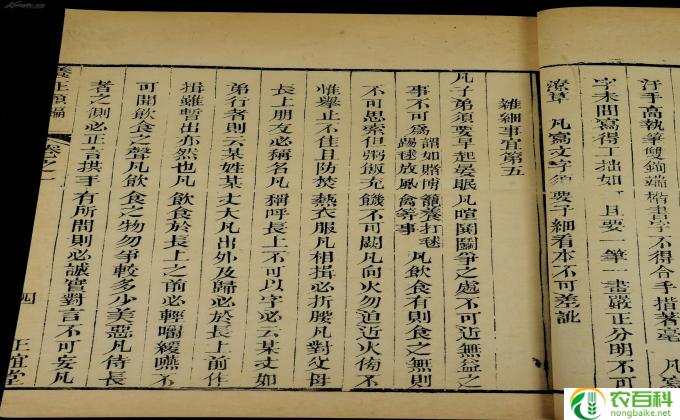 汙手高執筆雙鉤端楷書字不得令手揩著毫 凡寫
字未問寫得工拙如 且要一筆一畫嚴正分明不可
潦草 凡寫文字須要子細看本不可差訛
雜細事宜第五
凡子弟須要早起晏眠凡喧鬨鬭爭之處不可近無益之
事不可爲謂如賭博籠養打毬踢毬放風禽等事凡飲食有則食之無則
不可思索但粥飯充饑不可闕凡向火勿迫近火傍不
惟舉止不佳且防焚爇衣服凡相揖必折腰凡對父母
長上朋友必稱名凡稱呼長上不可以字必云某丈如
弟行者則云某姓某丈凡出外及歸必於長上前作
揖雖暫出亦然也凡飲食於長上之前必輕嚼緩嚥不
可聞飲食之聲凡飲食之物勿爭較多少美惡凡侍長
者之側必正言拱手有所問則必誠實對言不可妄凡
養正類編 卷之一 四 正誼堂
农百科
nongbaike.net